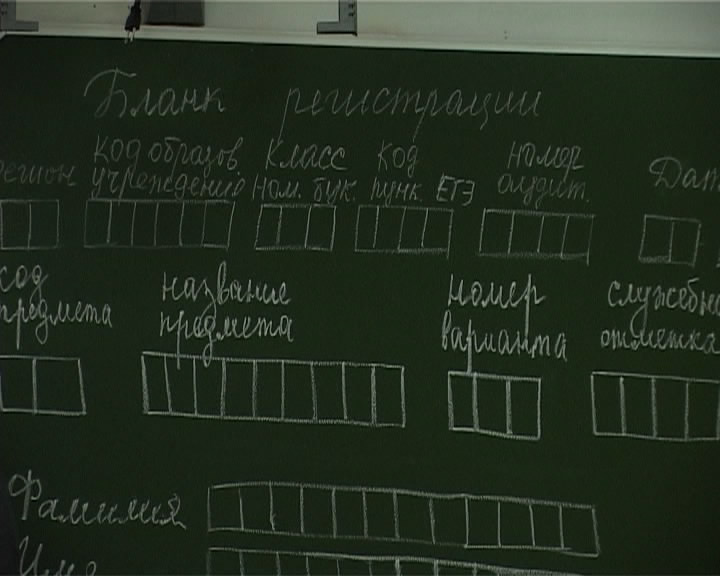 Бланк регистрации
регион Код образов. учреждение Класс Ном. бук. Код пунк. ЕГЭ Номер аудит. Дат
код предмета название предмета номер варианта служебн отметка
Фамилия
Имя